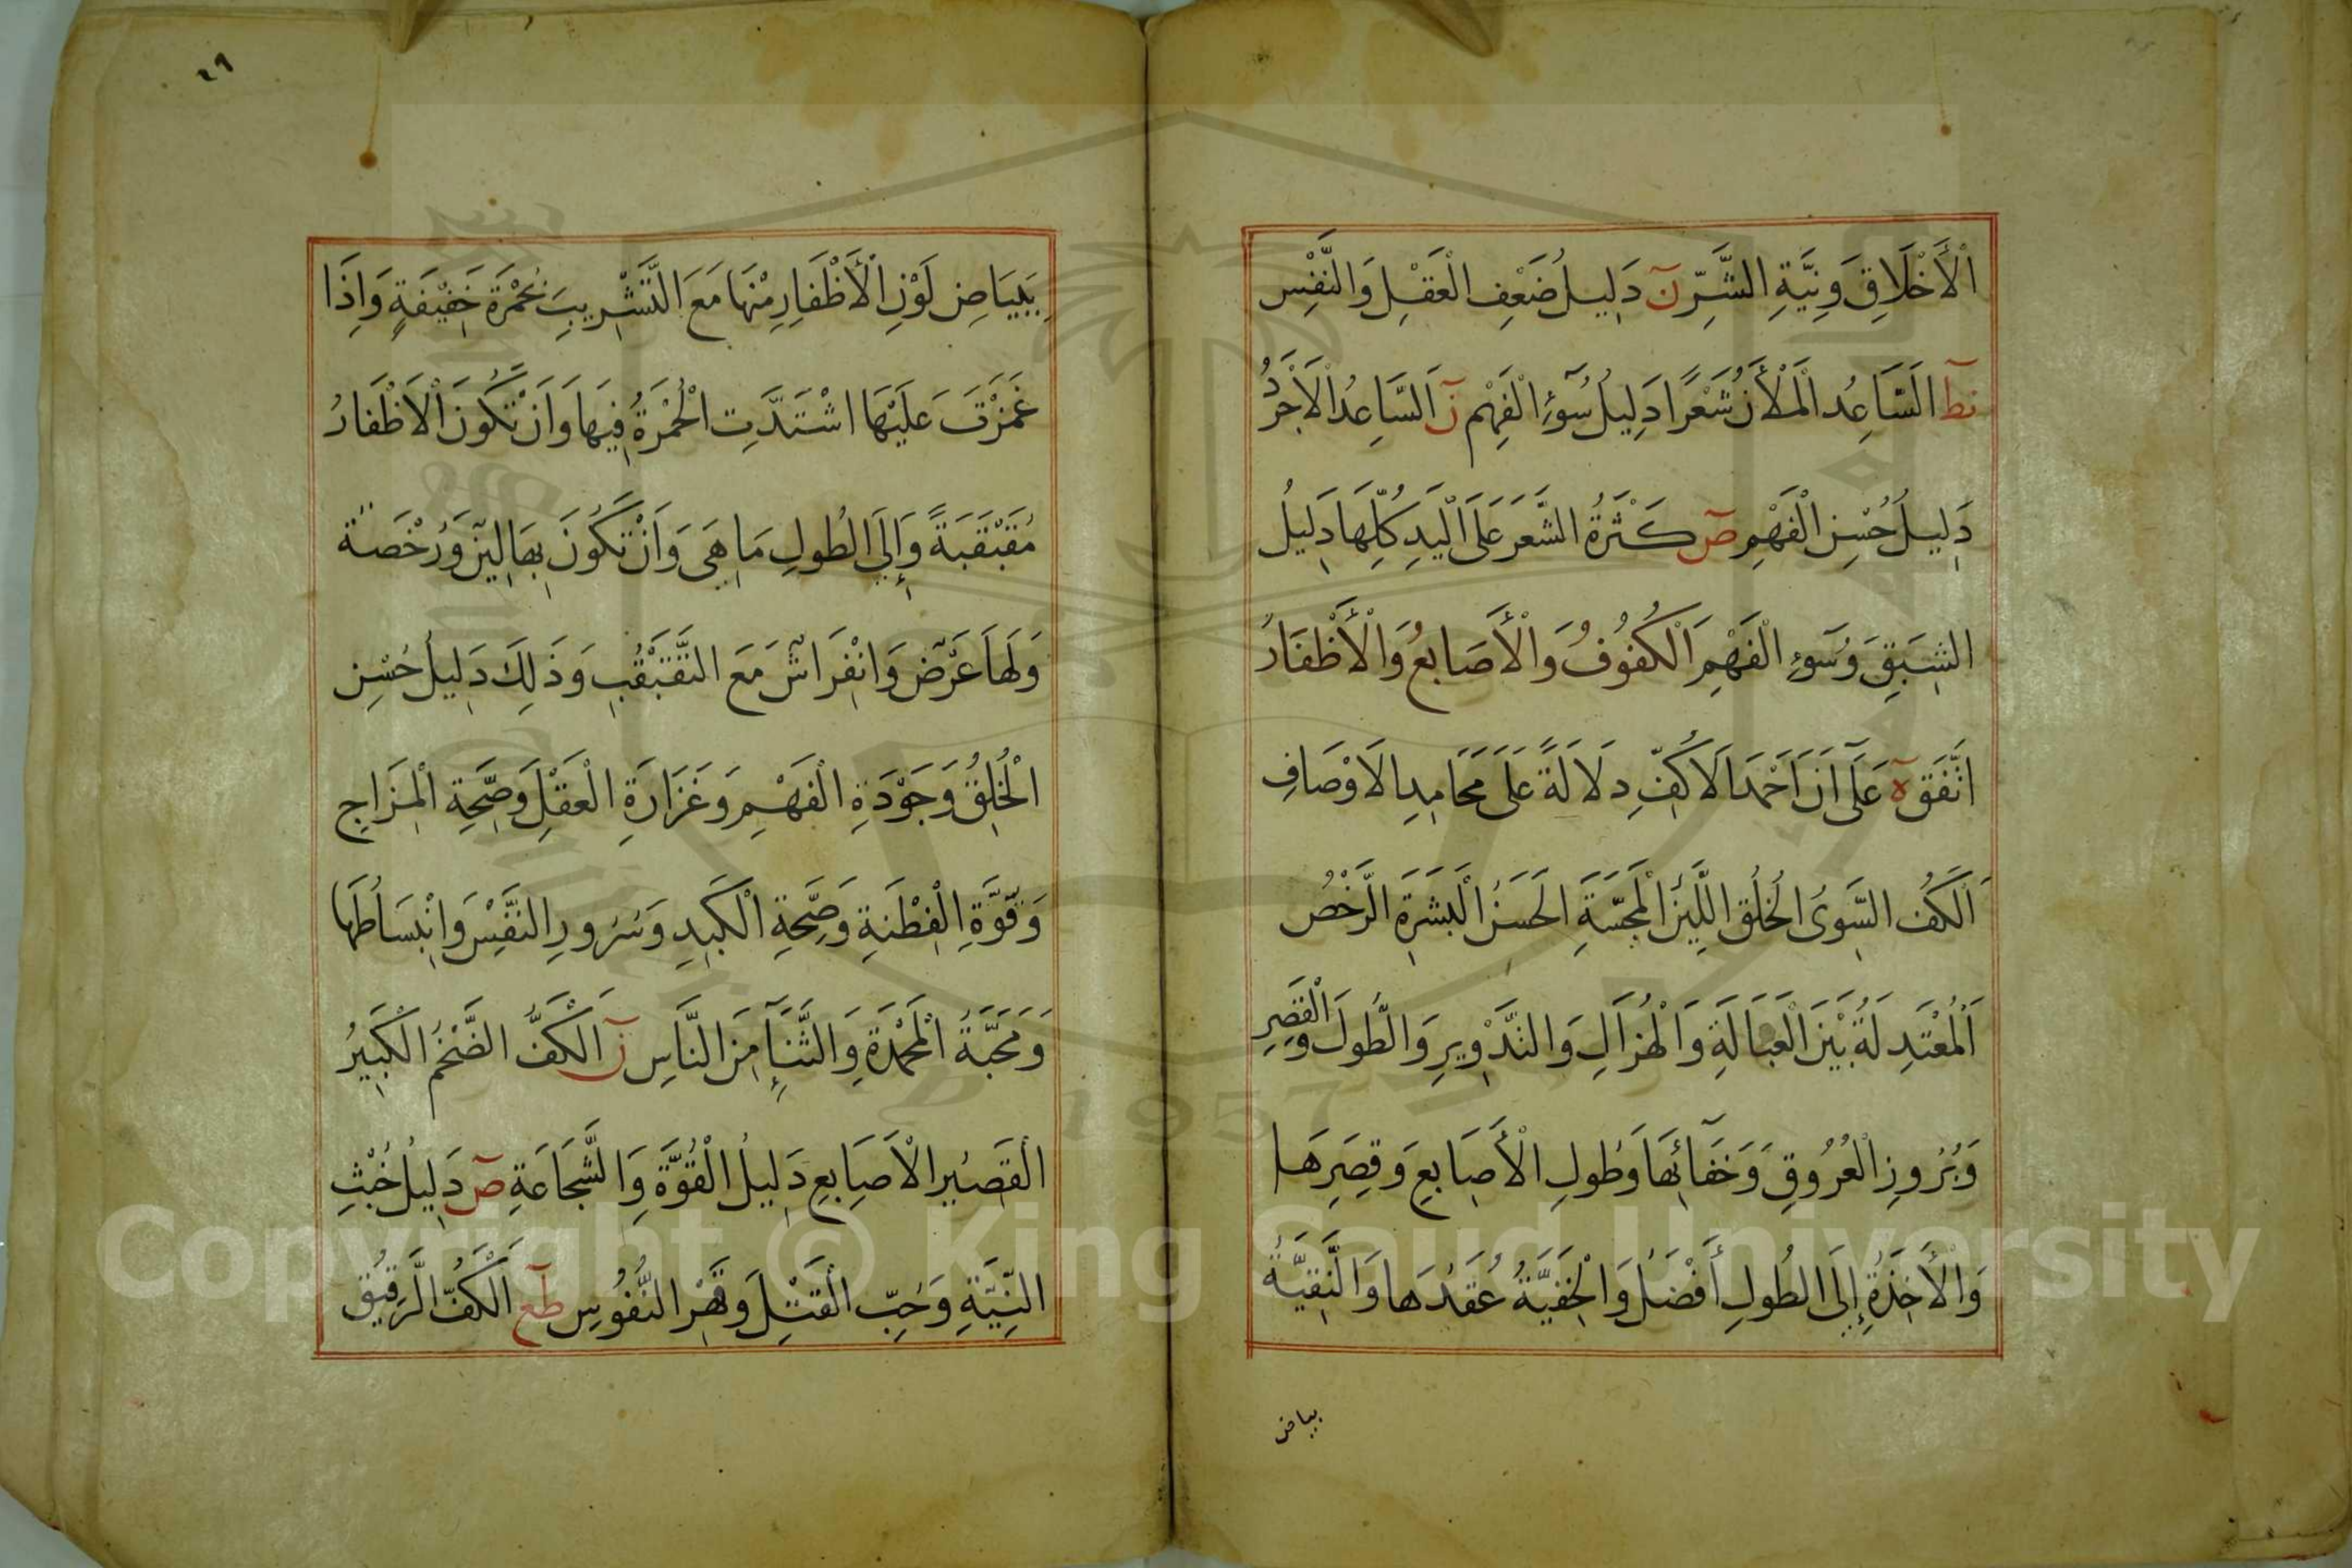 اْلأَخْلَاقِ وَنِيَّةِ الشَّرِّ نَ دَلِيلُ ضَعْفِ الْعَقْلِ وَالنَّفْسِ
نط السَّاعِدُ الْمَلْأَنُ شَعْرًا دَلِيلُ سُوٓءِ الْفَهْمِ نَ اَلسَّاعِدُ الْاَجْرَدُ
دَلِيلُ حُسْنِ الْفَهْمِ صَ كَثْرَةُ الشَّعَرِ عَلَى الْيَدِ كُلِّهَا دَلِيلُ
الشَّبَقِ وَسُوٓءِ الْفَهْمِ اَلْكُفُوفُ وَالْأَصَابِعُ وَالْأَظْفَارُ
اتَّفَقَ ه عَلَى اَنَّ اَحْمَدَ الْاَكُفِّ دِلَالَةً عَلَى مَحَامِدِ الْاَوْصَافِ
اَلْكَفُّ السَّوِىُّ الْخُلُقِ اللَّيِّنُ الْمَجَسَّةِ الْحَسَنُ الْبَشَرَةِ الرَّخْصُ
اَلْمُعْتَدِلَةُ بَيْنَ الْعَبَالَةِ وَالْهُزَالِ وَالتَّدْوِيرِ وَالطُّولِ وَالْقِصَرِ
وَبُرُوزِ الْعُرُوقِ وَخَفَآئِهَا وَطُولِ الْأَصَابِعِ وَقِصَرِهَا
وَالْأَخِذَةُ إِلَى الطُولِ أَفْضَلُ وَالْخَفِيَّةُ عُقَدُهَا وَالنَّقِيَّةُ
بياض
٤٩
بِبَيَاضِ لَوْنِ الْأَظْفَارِ مِنْهَا مَعَ التَّشْرِيبِ بِحُمْرَةٍ خَفِيْفَةٍ وَاِذَا
غَمَزْتَ عَلَيْهَا اشْتَدَّتِ الْحُمْرَةُ فِيهَا وَاَنْ تَكُونَ الْاَظْفَارُ
مُقَبْقَبَةً وَإِلَى الطُولِ مَا هِىَ وَاَنْ تَكُونَ بِهَا لِينٌ وَرُخْصَةٌ
وَلَهَا عَرْضٌ وَانْفِرَاشٌ مَعَ التَّقَبْقُبِ وَذَلِكَ دَلِيلُ حُسْنِ
الْخُلُقِ وَجَوْدَةِ الْفَهْمِ وَغَزَارَةِ الْعَقْلِ وَصِحَّةِ الْمِزَاجِ
وَقُوَّةِ الْفِطْنَةِ وَصِحَّةِ الْكَبِدِ وَسُرُورِ النَّفْسِ وَانْبِسَاطِهَا
وَمَحَبَّةُ الْمَحْمَدَةِ وَالثَّنَآءِ مِنَ النَّاسِ نَ اَلْكَفُّ الضَّخْمُ الْكَبِيرُ
الْقَصِيرُ الْاَصَابِعِ دَلِيلُ الْقُوَّةِ وَالشَّجَاعَةِ صَ دَلِيلُ خُبْثِ
النِّيَّةِ وَحُبِّ الْقَتْلِ وَقَهْرِ النُّفُوسِ طع اَلْكَفُّ الرَّقِيْقُ
Copyright © King Saud University
1957